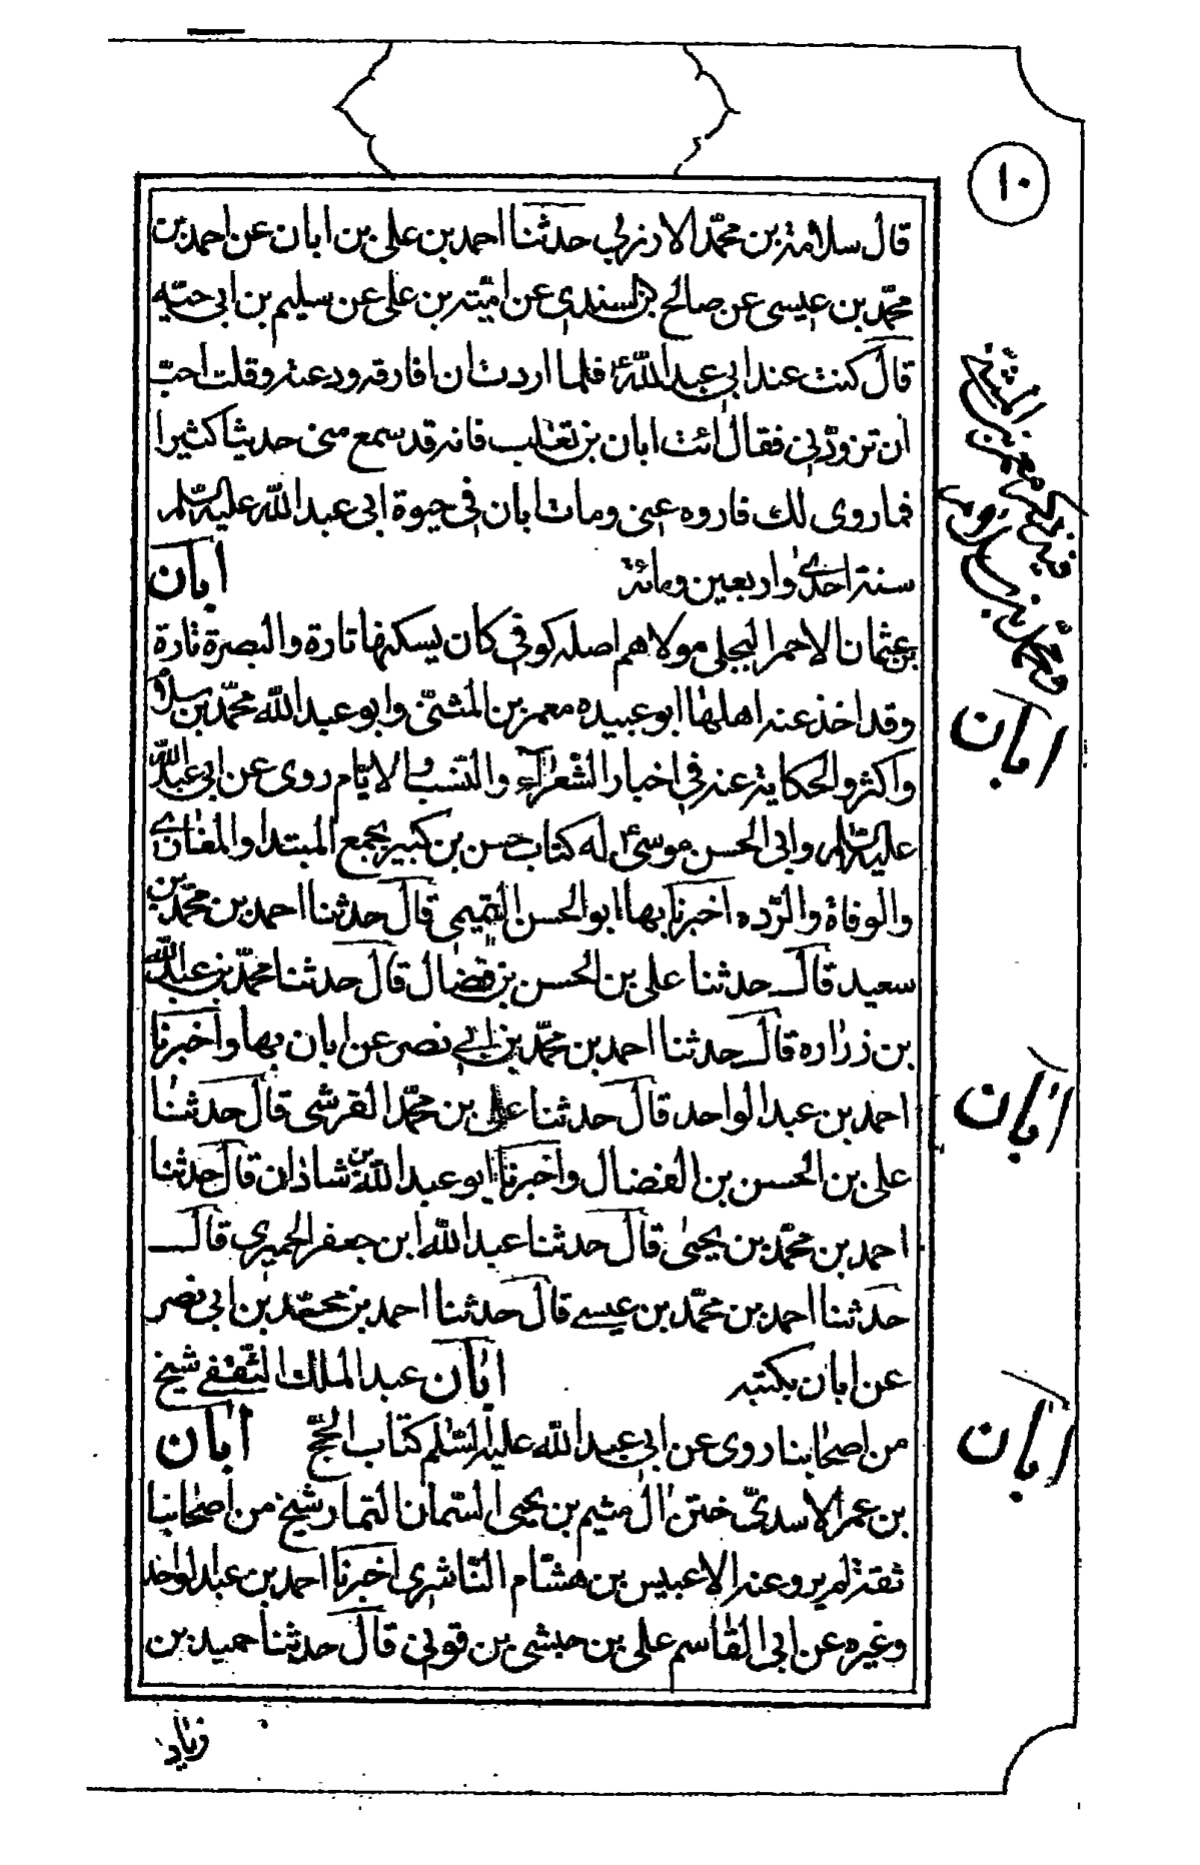 ١٠
قال سلامة بن محمّد الارزنى حدثنا احمد بن على بن ابان عن احمد بن
محمّد بن عيسى عن صالح بن السندى عن اميّة بن على عن سليم بن ابى حيّه
قال كنت عند ابى عبد اللّه ع فلما اردت ان افارقه ودعته وقلت احبّ
ان تزوّدنى فقال ائت ابان بن تغلب فانه قد سمع منى حديثا كثيرا
فما روى لك فاروه عنى ومات ابان فى حيوة ابى عبد الله عليه السّلم
سنة احدى واربعين ومائة ابان
بن عثمان الاحمر البجلى مولاهم اصله كوفى كان يسكنها تارة والبصرة تارة
وقد اخذ عنه اهلها ابو عبيده معمر بن المثنىّ وابو عبد الله محمّد بن سلام
واكثروا الحكاية عنه فى اخبار الشعرآء والنسب والايّام روى عن ابى عبد اللّه
عليه السّلم وابى الحسن موسى ع له كتاب حسن بن كبير يجمع المبتدا والمغازى
والوفاة والرّده اخبرنا بها ابو الحسن التميمى قال حدثنا احمد بن محمّد بن
سعيد قال حدثنا على بن الحسن بن فضال قال حدثنا محمّد بن عبد اللّه
بن زراره قال حدثنا احمد بن محمّد بن ابى نصر عن ابان بها واخبرنا
احمد بن عبد الواحد قال حدثنا على بن محمّد القرشى قال حدثنا
على بن الحسن بن الفضال واخبرنا ابو عبد اللّه بن شاذان قال حدثنا
احمد بن محمّد بن يحيى قال حدثنا عبد اللّه ابن جعفر الحميرى قال
حدثنا احمد بن محمّد بن عيسى قال حدثنا احمد بن محمّد بن ابى نصر
عن ابان بكتبه ابان عبد الملك الثقفى شيخ
من اصحابنا روى عن ابى عبد الله عليه السّلم كتاب الحجّ ابان
بن عمر الاسدىّ ختن ال ميثم بن يحيى السّمان التمار شيخ من اصحابنا
ثقة لم يرو عنه الا عبيس بن هشام النّاشرى اخبرنا احمد بن عبد الواحد
وغيره عن ابى القاسم على بن حبشى بن قونى قال حدثنا حميد بن
زياد
ابان
ابان
ابان